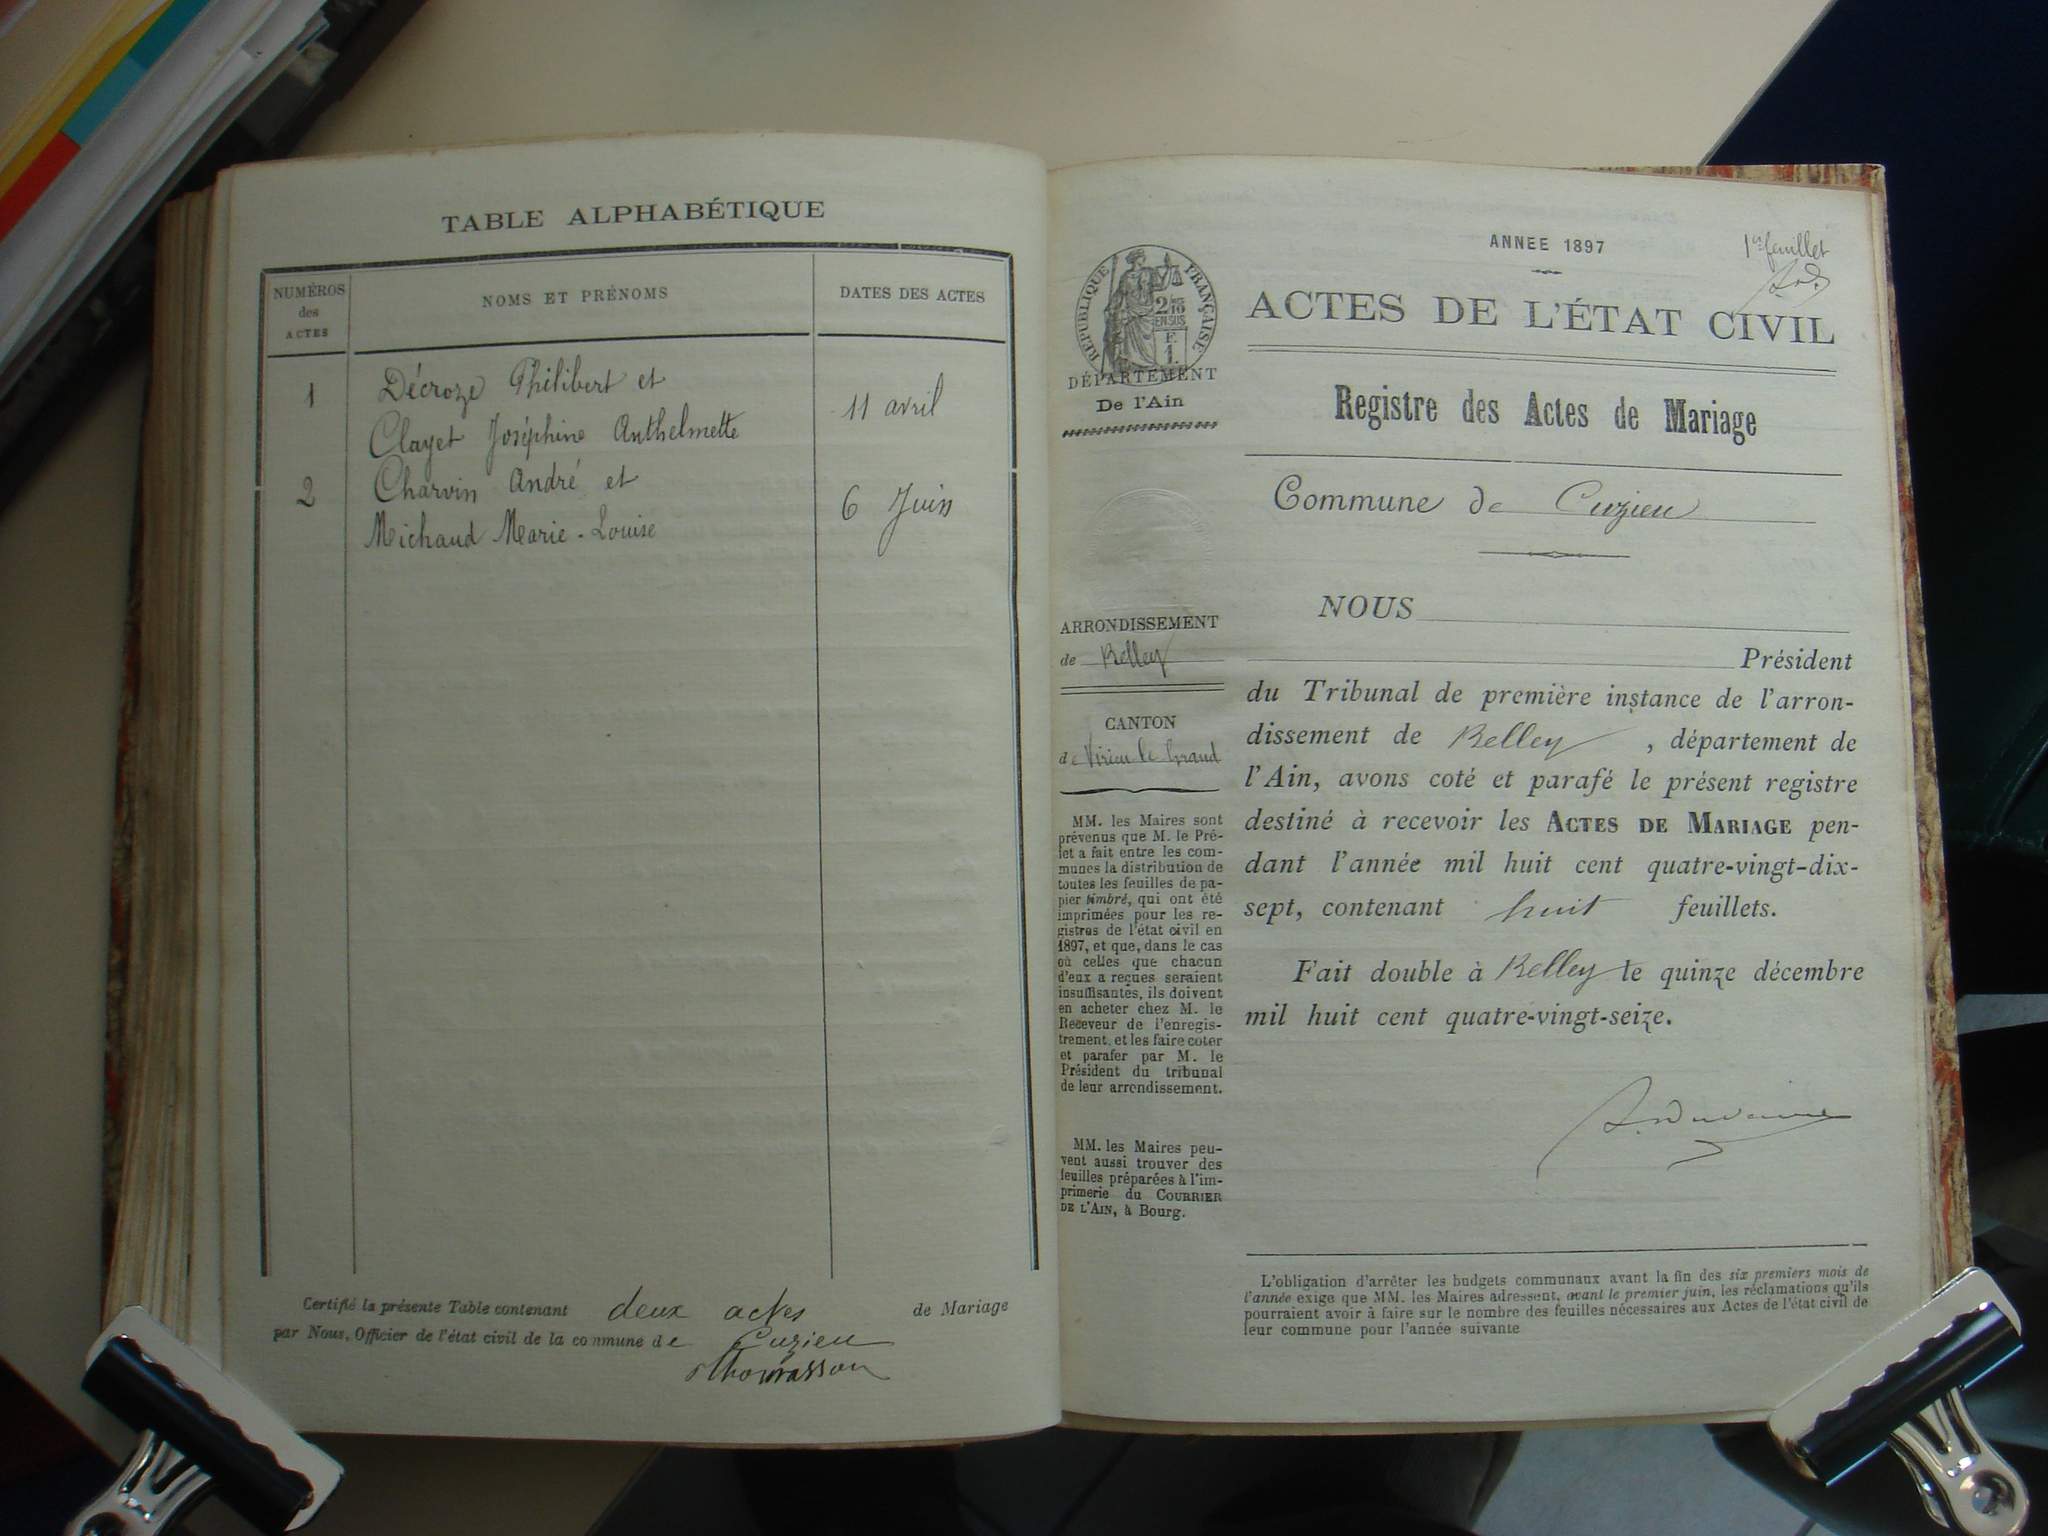 TABLE ALPHABÉTIQUE
NUMÉROS
des
ACTES
NOMS ET PRÉNOMS
DATES DES ACTES
1
Décroze Philibert et
Clayet Joséphine Anthelmette
11 avril
2
Charvin André et
Michaud Marie-Louise
6 Juin
Certifié la présente Table contenant deux actes de Mariage
par Nous, Officier de l'état civil de la commune de Cuzieu
Thomasson
RÉPUBLIQUE FRANÇAISE
2/10
EN SUS
F.
1.
DÉPARTEMENT
De l'Ain
ARRONDISSEMENT
de Belley
CANTON
de Virieu le Grand
MM. les Maires sont
prévenus que M. le Pré-
fet a fait entre les com-
munes la distribution de
toutes les feuilles de pa-
pier timbré, qui ont été
imprimées pour les re-
gistres de l'état civil en
1897, et que, dans le cas
où celles que chacun
d'eux a reçues seraient
insuffisantes, ils doivent
en acheter chez M. le
Receveur de l'enregis-
trement, et les faire coter
et parafer par M. le
Président du tribunal
de leur arrondissement.
MM. les Maires peu-
vent aussi trouver des
feuilles préparées à l'im-
primerie du COURRIER
DE L'AIN, à Bourg.
ANNEE 1897
1er feuillet
ACTES DE L'ÉTAT CIVIL
Registre des Actes de Mariage
Commune de Cuzieu
NOUS
Président
du Tribunal de première instance de l'arron-
dissement de Belley, département de
l'Ain, avons coté et parafé le présent registre
destiné à recevoir les ACTES DE MARIAGE pen-
dant l'année mil huit cent quatre-vingt-dix-
sept, contenant huit feuillets.
Fait double à Belley le quinze décembre
mil huit cent quatre-vingt-seize.
L'obligation d'arrêter les budgets communaux avant la fin des six premiers mois de
l'année exige que MM. les Maires adressent, avant le premier juin, les réclamations qu'ils
pourraient avoir à faire sur le nombre des feuilles nécessaires aux Actes de l'état civil de
leur commune pour l'année suivante